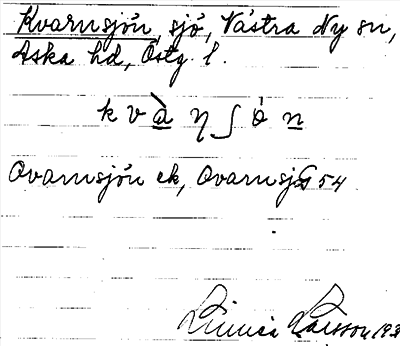 Kvarnsjön, sjö, Västra Ny sn,
Aska hd, Östg. l.
k v à η ʃ ȯ n
Qvarnsjön ek, Qvarnsjö 54
Linnéa Larsson 193